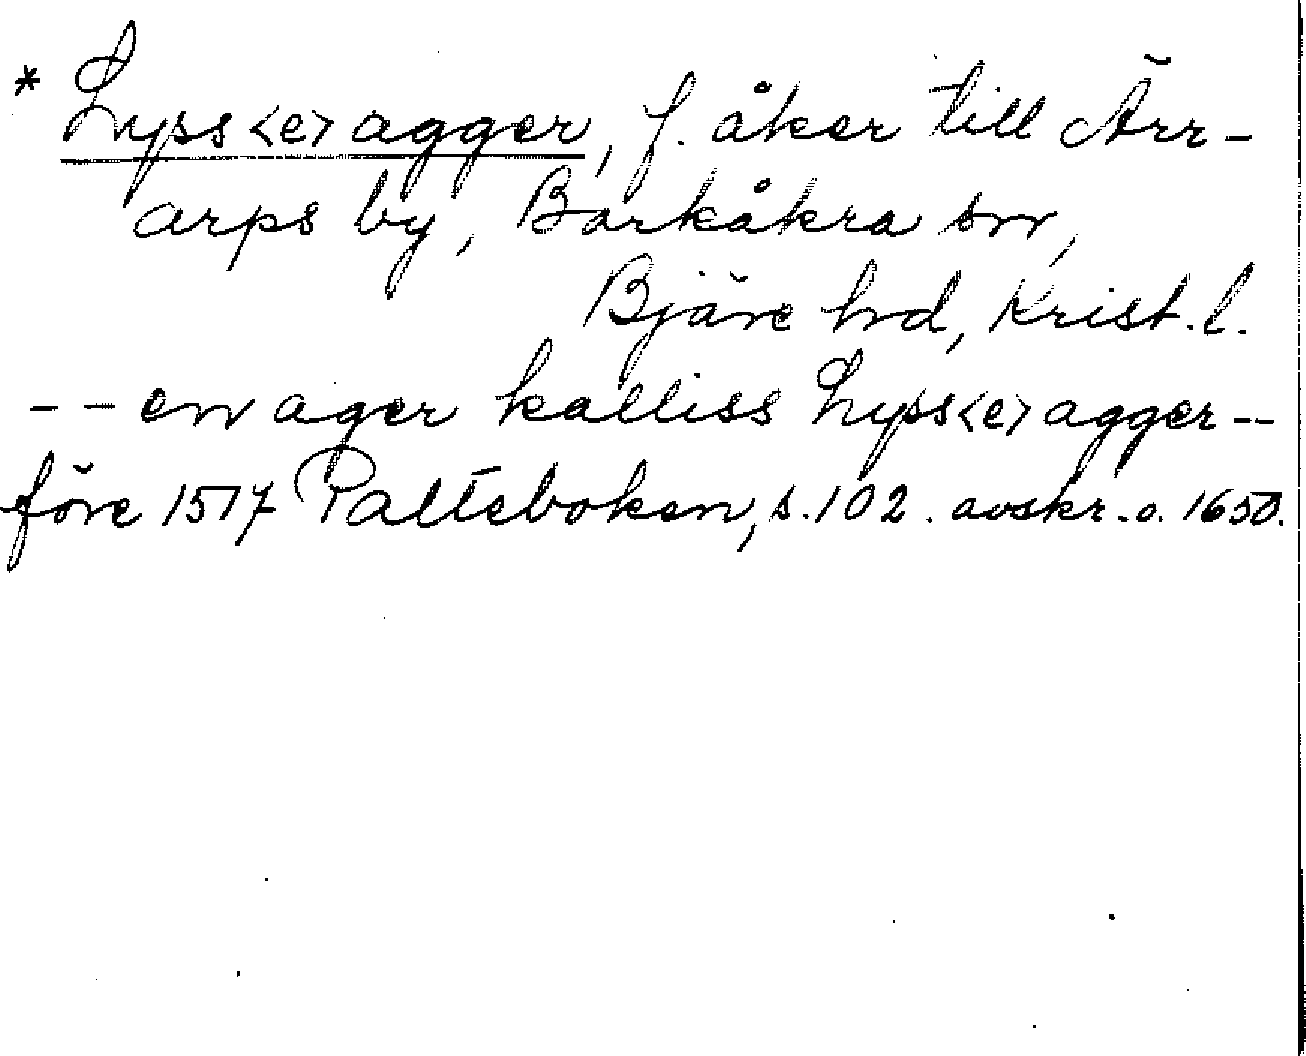 * Lyss<e>agger, f. åker till Ärr-
arps by, Barkåkra sn,
Bjäre hd, Krist. l.
-- en ager kalliss Lyss<e>agger --
före 1517 Palteboken, s. 102. avskr. o. 1650.